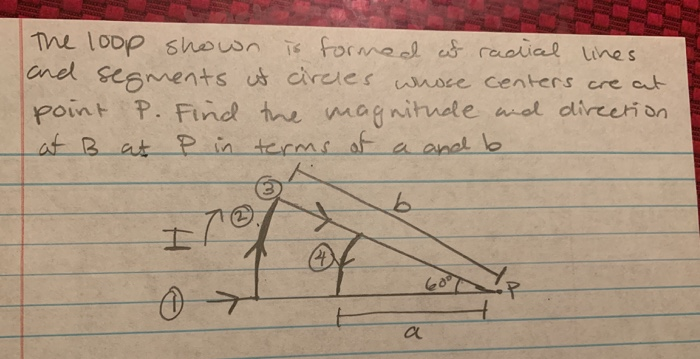 The loop shown is formed of radial lines
and segments of circles whose centers are at
point P. Find the magnitude and direction
of B at P in terms of a and b
③
b
I
②
④
60°
P
①
a